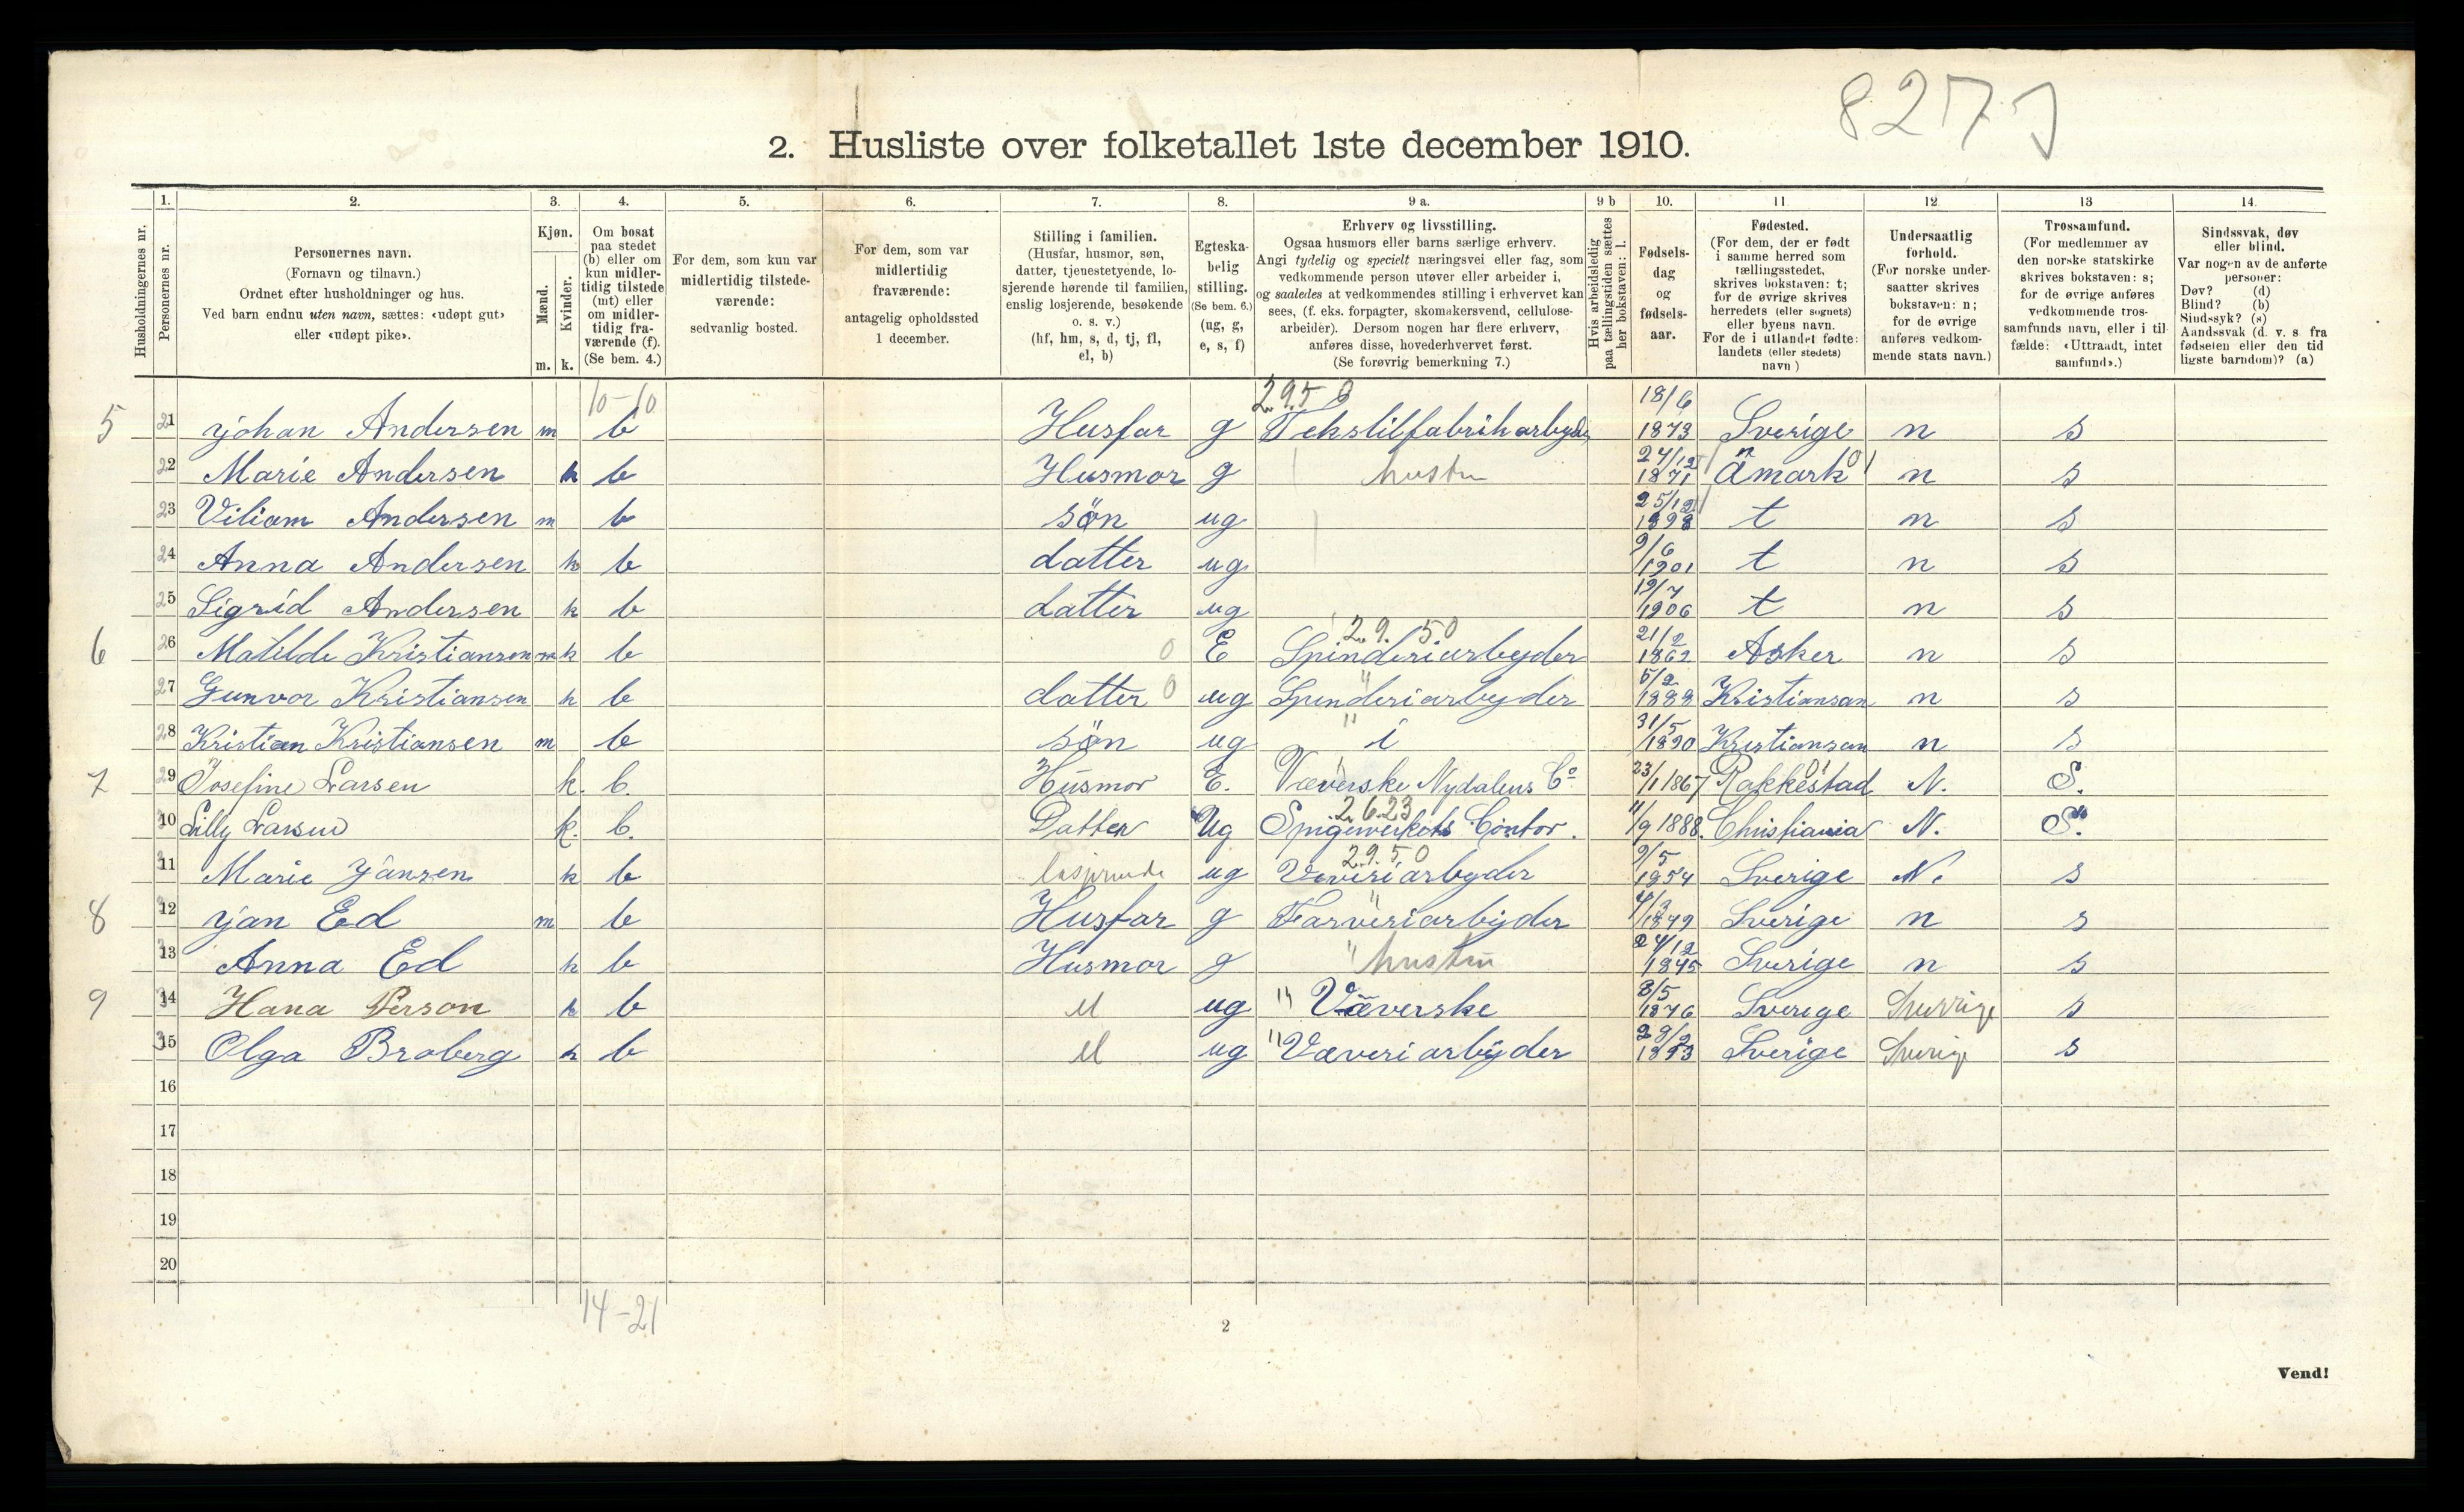 827
2. Husliste over folketallet 1ste december 1910.
Husholdningernes nr.
1. Personernes nr.
2. Personernes navn.
(Fornavn og tilnavn.)
Ordnet efter husholdninger og hus.
Ved barn endnu uten navn, sættes: «udøpt gut»
eller «udøpt pike».
3. Kjøn.
Mænd. m.
Kvinder. k.
4. Om bosat
paa stedet
(b) eller om
kun midler-
tidig tilstede
(mt) eller
om midler-
tidig fra-
værende (f).
(Se bem. 4.)
5. For dem, som kun var
midlertidig tilstede-
værende:
sedvanlig bosted.
6. For dem, som var
midlertidig
fraværende:
antagelig opholdssted
1 december.
7. Stilling i familien.
(Husfar, husmor, søn,
datter, tjenestetyende, lo-
sjerende hørende til familien,
enslig losjerende, besøkende
o. s. v.)
(hf, hm, s, d, tj, fl,
el, b)
8. Egteska-
belig
stilling.
(Se bem. 6.)
(ug, g,
e, s, f)
9 a. Erhverv og livsstilling.
Ogsaa husmors eller barns særlige erhverv.
Angi tydelig og specielt næringsvei eller fag, som
vedkommende person utøver eller arbeider i,
og saaledes at vedkommendes stilling i erhvervet kan
sees, (f. eks. forpagter, skomakersvend, cellulose-
arbeider). Dersom nogen har flere erhverv,
anføres disse, hovederhvervet først.
(Se forøvrig bemerkning 7.)
9 b Hvis arbeidsledig
paa tællingstiden sættes
her bokstaven: l.
10. Fødsels-
dag
og
fødsels-
aar.
11. Fødested.
(For dem, der er født
i samme herred som
tællingsstedet,
skrives bokstaven: t;
for de øvrige skrives
herredets (eller sognets)
eller byens navn.
For de i utlandet fødte:
landets (eller stedets)
navn)
12. Undersaatlig
forhold.
(For norske under-
saatter skrives
bokstaven: n;
for de øvrige
anføres vedkom-
mende stats navn.)
13. Trossamfund.
(For medlemmer av
den norske statskirke
skrives bokstaven: s;
for de øvrige anføres
vedkommende tros-
samfunds navn, eller i til-
fælde: «Uttraadt, intet
samfund».)
14. Sindssvak, døv
eller blind.
Var nogen av de anførte
personer:
Døv? (d)
Blind? (b)
Sindssyk? (s)
Aandssvak (d. v. s. fra
fødselen eller den tid-
ligste barndom)? (a)
10-10
5 21 Johan Andersen m b Husfar g Tekstilfabrikarbyder 18/6 1873 Sverige n s
22 Marie Andersen k b Husmor g hustru 24/12 1871 Åmark n s
23 Viliam Andersen m b søn ug 25/12 1898 t n s
24 Anna Andersen k b datter ug 9/6 1901 t n s
25 Sigrid Andersen k b datter ug 19/7 1906 t n s
2.9.50
6 26 Matilde Kristiansen k b E Spinderiarbyder 21/2 1862 Asker n s
27 Gunvor Kristiansen k b datter ug Spinderiarbyder 5/2 1888 Kristiansan n s
28 Kristian Kristiansen m b søn ug i 31/5 1890 Kristiansan n s
7 29 Josefine Larsen k. b. Husmor E. Væverske Nydalens Co 23/1 1867 Rakkestad N. S.
2.6.23
30 Lilly Larsen k. b. Datter Ug Spigerverkets Contor. 11/9 1888. Christiania N. S.
2.9.50
11 Marie Jansen k b losjerende ug Væveriarbyder 9/5 1854 Sverige N. s
8 12 Jan Ed m b Husfar g Farveriarbyder 1849 Sverige n s
13 Anna Ed k b Husmor g " hustru 24/12 1845 Sverige n s
9 14 Hana Person k b el ug " Væverske 8/5 1876 Sverige Sverrige s
15 Olga Broberg k b el ug " Væveriarbyder Sverige Sverige s
16
17
18
19
20
14-21
2
Vend!